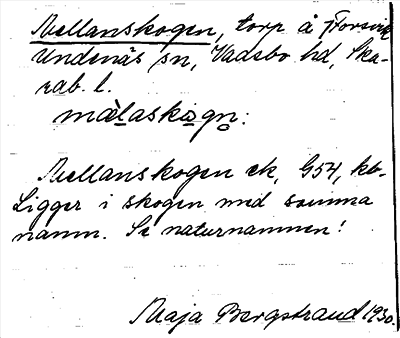 Mellanskogen, torp å Forsvik
Undenäs sn, Vadsbo hd, Ska-
rab. l.
mælaskogn:
Mellanskogen ek, G54, kb.
Ligger i skogen med samma
namn. Se naturnamnen!
Maja Bergstrand 1930.